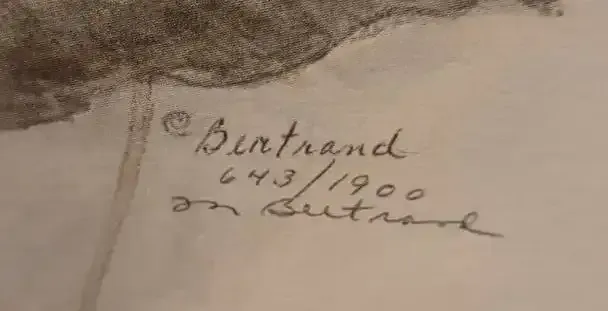 © Bertrand
643/1900
m Bertrand